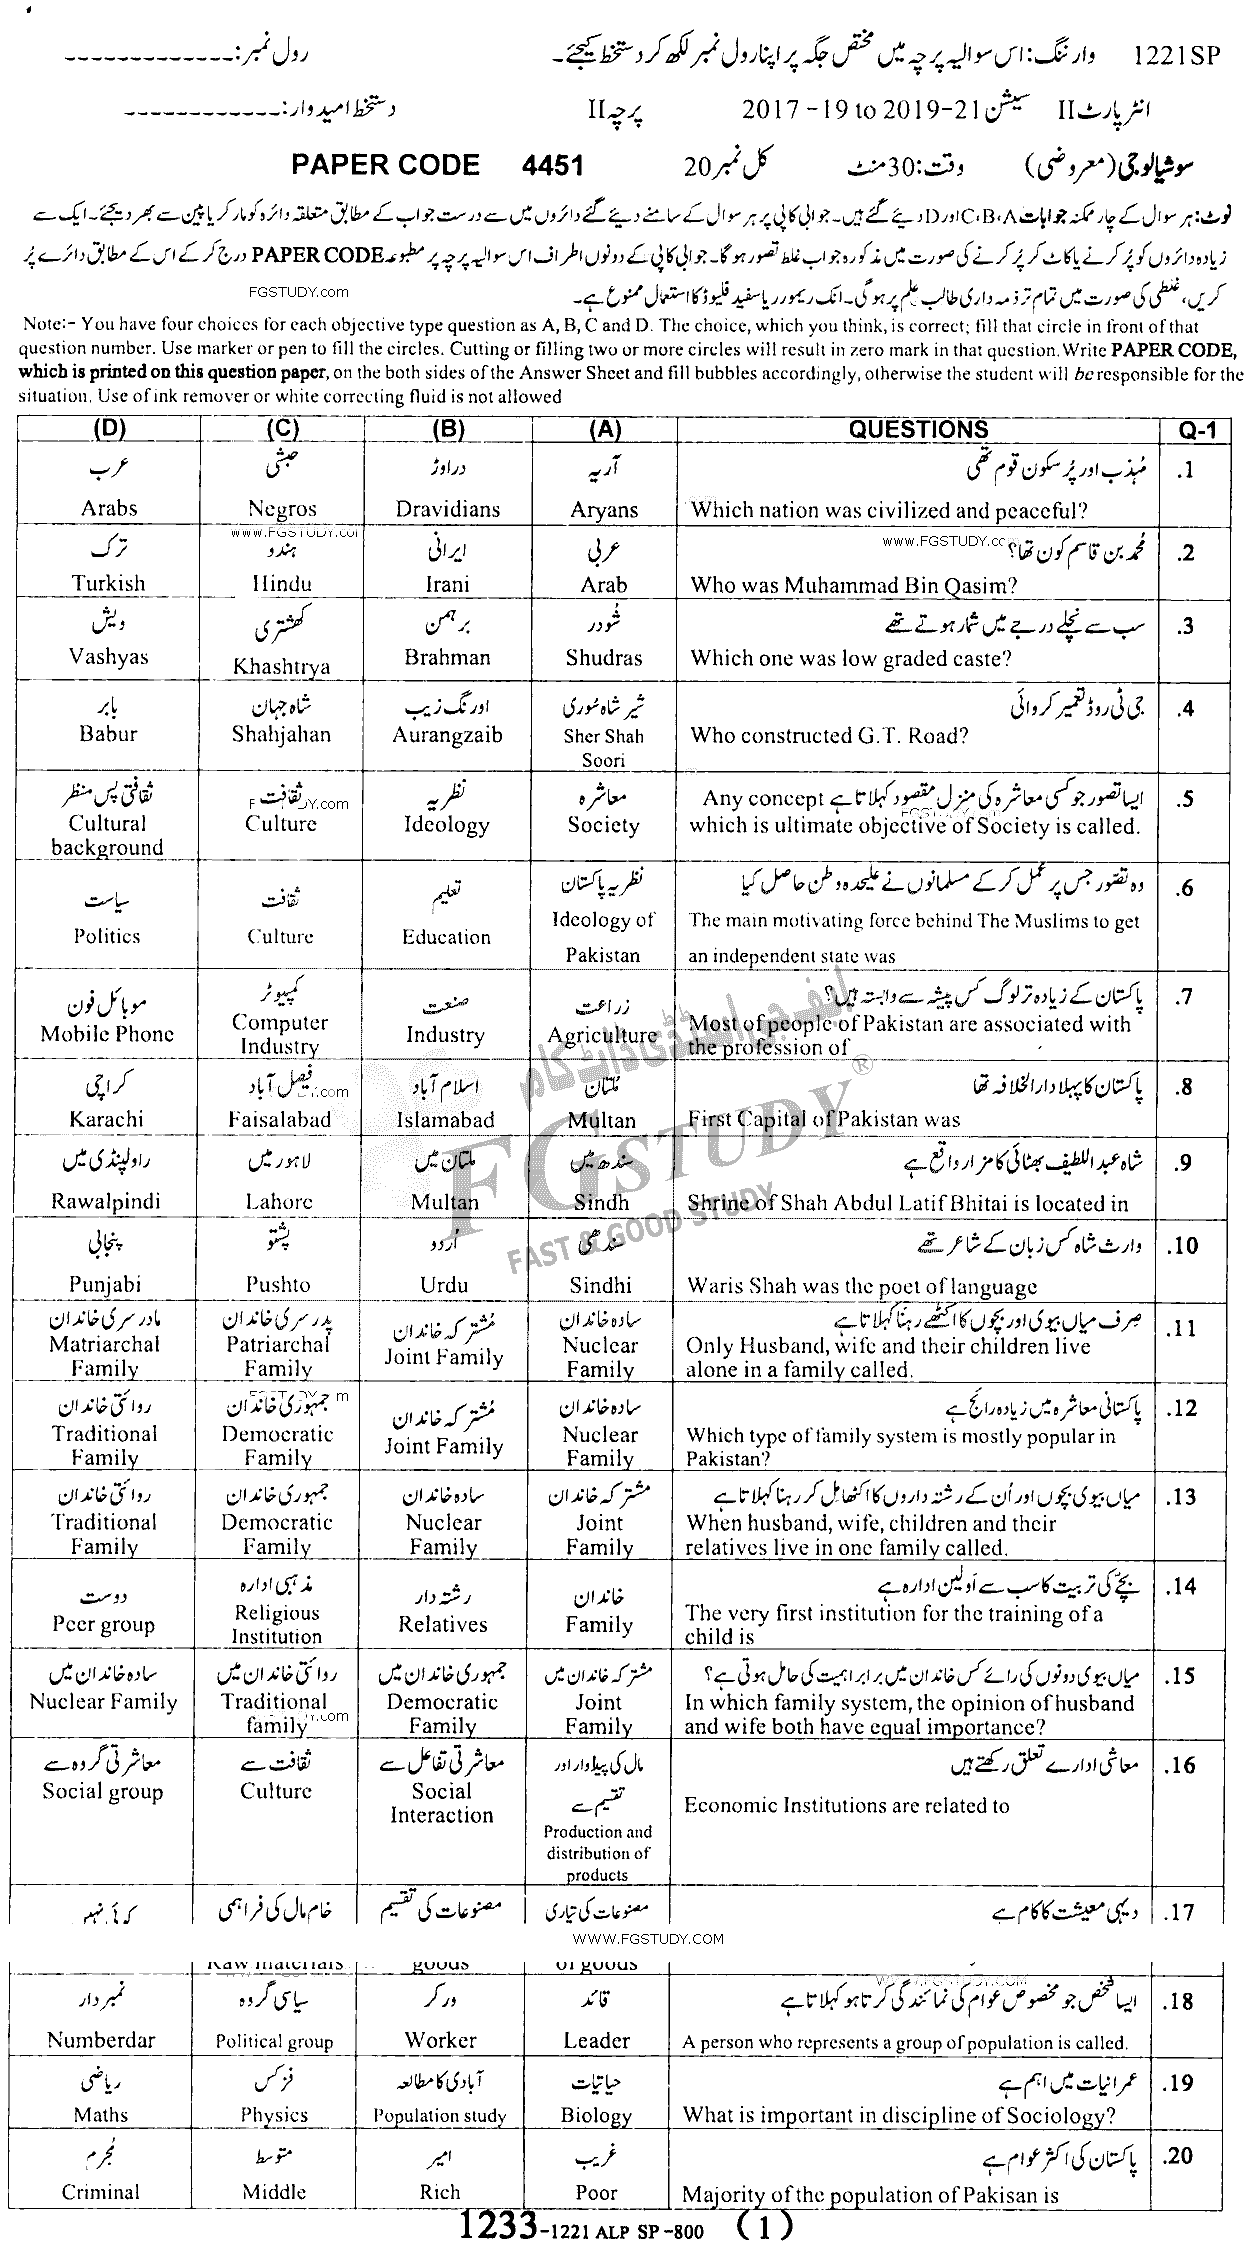 1221SP وارننگ: اس سوالیہ پرچہ میں مختص جگہ پر اپنا رول نمبر لکھ کر دستخط کیجئے۔ رول نمبر: -------------
انٹر پارٹ II سیشن 2017 -19 to 2019-21 پرچہ II دستخط امیدوار: ------------
سوشیالوجی (معروضی) وقت: 30 منٹ کل نمبر 20 PAPER CODE 4451
نوٹ: ہر سوال کے چار ممکنہ جوابات A، B، C اور D دیئے گئے ہیں۔ جوابی کاپی پر ہر سوال کے سامنے دیئے گئے دائروں میں سے درست جواب کے مطابق متعلقہ دائرہ کو مارکر یا پین سے بھر دیجئے۔ ایک سے
زیادہ دائروں کو پُر کرنے یا کاٹ کر پُر کرنے کی صورت میں مذکورہ جواب غلط تصور ہوگا۔ جوابی کاپی کے دونوں اطراف اس سوالیہ پرچہ پر مطبوعہ PAPER CODE درج کر کے اس کے مطابق دائرے پُر
کریں، غلطی کی صورت میں تمام تر ذمہ داری طالب علم پر ہوگی۔ انک ریموور یا سفید فلیوڈ کا استعمال ممنوع ہے۔
FGSTUDY.com
Note:- You have four choices for each objective type question as A, B, C and D. The choice, which you think, is correct; fill that circle in front of that
question number. Use marker or pen to fill the circles. Cutting or filling two or more circles will result in zero mark in that question. Write PAPER CODE,
which is printed on this question paper, on the both sides of the Answer Sheet and fill bubbles accordingly, otherwise the student will be responsible for the
situation. Use of ink remover or white correcting fluid is not allowed
(D) (C) (B) (A) QUESTIONS Q-1
عرب حبشی دراوڑ آریہ مہذب اور پُر سکون قوم تھی .1
Arabs Negros Dravidians Aryans Which nation was civilized and peaceful?
www.FGSTUDY.com www.FGSTUDY.com
ترک ہندو ایرانی عربی محمد بن قاسم کون تھا؟ .2
Turkish Hindu Irani Arab Who was Muhammad Bin Qasim?
ویش کھشتری برہمن شُودر سب سے نچلے درجے میں شمار ہوتے تھے .3
Vashyas Khashtrya Brahman Shudras Which one was low graded caste?
بابر شاہ جہان اورنگ زیب شیر شاہ سُوری جی ٹی روڈ تعمیر کروائی .4
Babur Shahjahan Aurangzaib Sher Shah Soori Who constructed G.T. Road?
ثقافتی پس منظر ثقافت نظریہ معاشرہ ایسا تصور جو کسی معاشرہ کی منزل مقصود کہلاتا ہے Any concept .5
Cultural background Culture Ideology Society which is ultimate objective of Society is called.
سیاست ثقافت تعلیم نظریہ پاکستان وہ تصّور جس پر عمل کر کے مسلمانوں نے علیحدہ وطن حاصل کیا .6
Politics Culture Education Ideology of Pakistan The main motivating force behind The Muslims to get
an independent state was
موبائل فون کمپیوٹر صنعت زراعت پاکستان کے زیادہ تر لوگ کس پیشہ سے وابستہ ہیں؟ .7
Mobile Phone Computer Industry Industry Agriculture Most of people of Pakistan are associated with
the profession of
کراچی فیصل آباد اسلام آباد مُلتان پاکستان کا پہلا دارالخلافہ تھا .8
Karachi Faisalabad Islamabad Multan First Capital of Pakistan was
راولپنڈی میں لاہور میں ملتان میں سندھ میں شاہ عبداللطیف بھٹائی کا مزار واقع ہے .9
Rawalpindi Lahore Multan Sindh Shrine of Shah Abdul Latif Bhitai is located in
پنجابی پشتو اُردو سندھی وارث شاہ کس زبان کے شاعر تھے .10
Punjabi Pushto Urdu Sindhi Waris Shah was the poet of language
مادر سری خاندان پدر سری خاندان مُشترکہ خاندان سادہ خاندان صِرف میاں بیوی اور بچوں کا اکٹھے رہنا کہلاتا ہے .11
Matriarchal Family Patriarchal Family Joint Family Nuclear Family Only Husband, wife and their children live
alone in a family called.
روائتی خاندان جمہوری خاندان مُشترکہ خاندان سادہ خاندان پاکستانی معاشرہ میں زیادہ رائج ہے .12
Traditional Family Democratic Family Joint Family Nuclear Family Which type of family system is mostly popular in
Pakistan?
روائتی خاندان جمہوری خاندان سادہ خاندان مشترکہ خاندان میاں بیوی بچوں اور اُن کے رشتہ داروں کا اکٹھا مل کر رہنا کہلاتا ہے .13
Traditional Family Democratic Family Nuclear Family Joint Family When husband, wife, children and their
relatives live in one family called.
دوست مذہبی ادارہ رشتہ دار خاندان بچے کی تربیت کا سب سے اولین ادارہ ہے .14
Peer group Religious Institution Relatives Family The very first institution for the training of a
child is
سادہ خاندان میں روائتی خاندان میں جمہوری خاندان میں مشترکہ خاندان میں میاں بیوی دونوں کی رائے کس خاندان میں برابر اہمیت کی حامل ہوتی ہے؟ .15
Nuclear Family Traditional family Democratic Family Joint Family In which family system, the opinion of husband
and wife both have equal importance?
معاشرتی گروہ سے ثقافت سے معاشرتی تفاعل سے مال کی پیداوار اور تقسیم سے معاشی ادارے تعلق رکھتے ہیں .16
Social group Culture Social Interaction Production and distribution of products Economic Institutions are related to
خام مال کی فراہمی مصنوعات کی تقسیم مصنوعات کی تیاری دیہی معیشت کا کام ہے .17
WWW.FGSTUDY.COM
Raw materials goods of goods
نمبردار سیاسی گروہ ورکر قائد ایسا شخص جو مخصوص عوام کی نمائندگی کرتا ہو کہلاتا ہے .18
Numberdar Political group Worker Leader A person who represents a group of population is called.
ریاضی فزکس آبادی کا مطالعہ حیاتیات عمرانیات میں اہم ہے .19
Maths Physics Population study Biology What is important in discipline of Sociology?
مُجرم متوسط امیر غریب پاکستان کی اکثر عوام ہے .20
Criminal Middle Rich Poor Majority of the population of Pakisan is
1233-1221 ALP SP-800 (1)
ایف جی اسٹڈی ڈاٹ کام
FG STUDY ®
FAST & GOOD STUDY